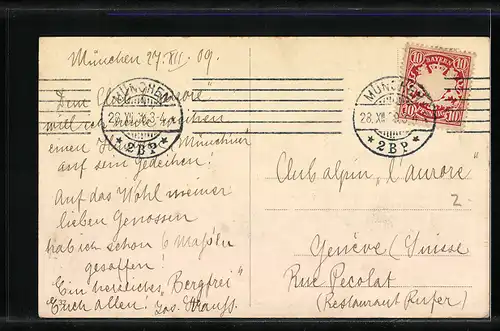 München 27.XII.09.
Dem Club "Aurore"
will ich
einen Münchner
auf sein Gedeihen!
Auf das Wohl meiner
lieben Genossen
hab ich schon 6 Maß'ln
gesoffen!
Ein herzliches "Bergfrei"
Euch allen! Jos. Strauss.
MÜNCHEN
28.XII. 3-4
* 2BP *
MÜNCHEN
28.XII.
* 2BP *
10 BAYERN 10
10 10
Club alpin "l'aurore"
2
Genève (Suisse
Rue Pecolat
(Restaurant Rufer)